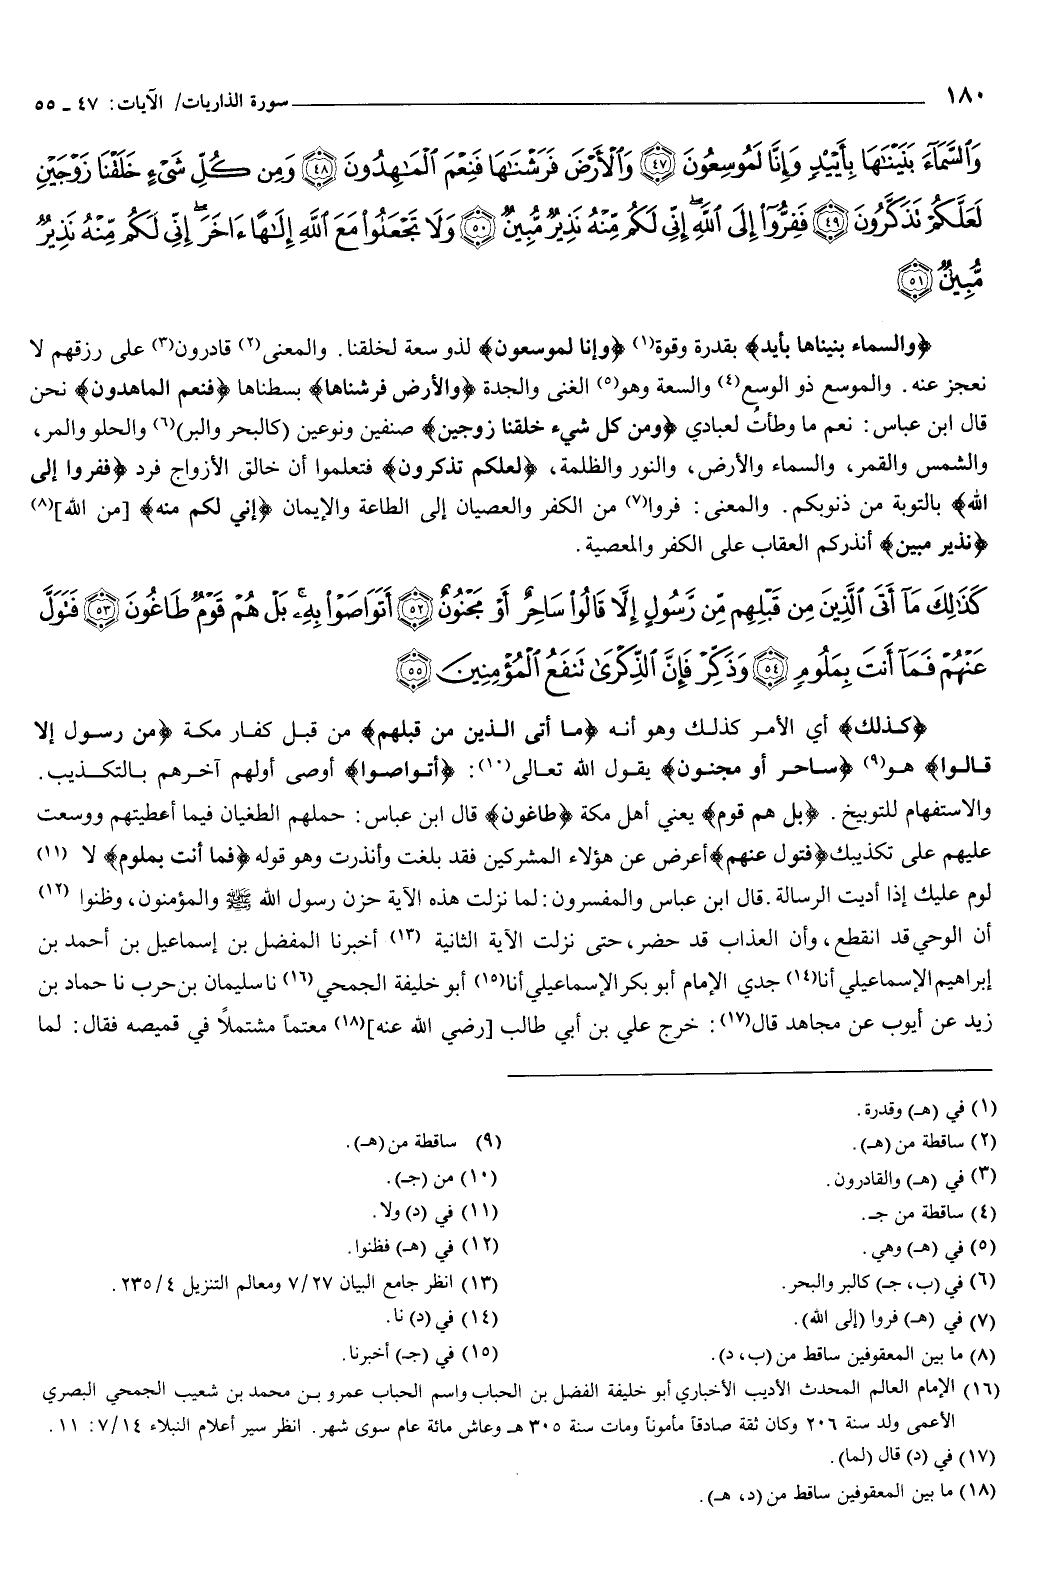 ١٨٠ سورة الذاريات/ الآيات: ٤٧ ـ ٥٥
وَٱلسَّمَآءَ بَنَيْنَٰهَا بِأَيْيْدٍ وَإِنَّا لَمُوسِعُونَ ﴿٤٧﴾ وَٱلْأَرْضَ فَرَشْنَٰهَا فَنِعْمَ ٱلْمَٰهِدُونَ ﴿٤٨﴾ وَمِن كُلِّ شَىْءٍ خَلَقْنَا زَوْجَيْنِ
لَعَلَّكُمْ تَذَكَّرُونَ ﴿٤٩﴾ فَفِرُّوٓا۟ إِلَى ٱللَّهِ ۖ إِنِّى لَكُم مِّنْهُ نَذِيرٌ مُّبِينٌ ﴿٥٠﴾ وَلَا تَجْعَلُوا۟ مَعَ ٱللَّهِ إِلَٰهًا ءَاخَرَ ۖ إِنِّى لَكُم مِّنْهُ نَذِيرٌ
مُّبِينٌ ﴿٥١﴾
﴿والسماء بنيناها بأيد﴾ بقدرة وقوة(١) ﴿وإنا لموسعون﴾ لذو سعة لخلقنا. والمعنى(٢) قادرون(٣) على رزقهم لا
نعجز عنه. والموسع ذو الوسع(٤) والسعة وهو(٥) الغنى والجدة ﴿والأرض فرشناها﴾ بسطناها ﴿فنعم الماهدون﴾ نحن
قال ابن عباس: نعم ما وطأت لعبادي ﴿ومن كل شيء خلقنا زوجين﴾ صنفين ونوعين (كالبحر والبر)(٦) والحلو والمر،
والشمس والقمر، والسماء والأرض، والنور والظلمة، ﴿لعلكم تذكرون﴾ فتعلموا أن خالق الأزواج فرد ﴿ففروا إلى
الله﴾ بالتوبة من ذنوبكم. والمعنى: فروا(٧) من الكفر والعصيان إلى الطاعة والإيمان ﴿إني لكم منه﴾ [من الله](٨)
﴿نذير مبين﴾ أنذركم العقاب على الكفر والمعصية.
كَذَٰلِكَ مَآ أَتَى ٱلَّذِينَ مِن قَبْلِهِم مِّن رَّسُولٍ إِلَّا قَالُوا۟ سَاحِرٌ أَوْ مَجْنُونٌ ﴿٥٢﴾ أَتَوَاصَوْا۟ بِهِۦ ۚ بَلْ هُمْ قَوْمٌ طَاغُونَ ﴿٥٣﴾ فَتَوَلَّ
عَنْهُمْ فَمَآ أَنتَ بِمَلُومٍ ﴿٥٤﴾ وَذَكِّرْ فَإِنَّ ٱلذِّكْرَىٰ تَنفَعُ ٱلْمُؤْمِنِينَ ﴿٥٥﴾
﴿كذلك﴾ أي الأمر كذلك وهو أنه ﴿ما أتى الذين من قبلهم﴾ من قبل كفار مكة ﴿من رسول إلا
قالوا﴾ هو(٩) ﴿ساحر أو مجنون﴾ يقول الله تعالى(١٠): ﴿أتواصوا﴾ أوصى أولهم آخرهم بالتكذيب.
والاستفهام للتوبيخ. ﴿بل هم قوم﴾ يعني أهل مكة ﴿طاغون﴾ قال ابن عباس: حملهم الطغيان فيما أعطيتهم ووسعت
عليهم على تكذيبك ﴿فتول عنهم﴾ أعرض عن هؤلاء المشركين فقد بلغت وأنذرت وهو قوله ﴿فما أنت بملوم﴾ لا (١١)
لوم عليك إذا أديت الرسالة. قال ابن عباس والمفسرون: لما نزلت هذه الآية حزن رسول الله ﷺ والمؤمنون، وظنوا (١٢)
أن الوحي قد انقطع، وأن العذاب قد حضر، حتى نزلت الآية الثانية (١٣) أخبرنا المفضل بن إسماعيل بن أحمد بن
إبراهيم الإسماعيلي أنا(١٤) جدي الإمام أبو بكر الإسماعيلي أنا(١٥) أبو خليفة الجمحي(١٦) نا سليمان بن حرب نا حماد بن
زيد عن أيوب عن مجاهد قال(١٧): خرج علي بن أبي طالب [رضي الله عنه](١٨) معتماً مشتملاً في قميصه فقال: لما
(١) في (هـ) وقدرة.
(٢) ساقطة من (هـ).
(٣) في (هـ) والقادرون.
(٤) ساقطة من جـ.
(٥) في (هـ) وهي.
(٦) في (ب، جـ) كالبر والبحر.
(٧) في (هـ) فروا (إلى الله).
(٨) ما بين المعقوفين ساقط من (ب، د).
(٩) ساقطة من (هـ).
(١٠) من (جـ).
(١١) في (د) ولا.
(١٢) في (هـ) فظنوا.
(١٣) انظر جامع البيان ٧/٢٧ ومعالم التنزيل ٢٣٥/٤.
(١٤) في (د) نا.
(١٥) في (جـ) أخبرنا.
(١٦) الإمام العالم المحدث الأديب الأخباري أبو خليفة الفضل بن الحباب واسم الحباب عمرو بن محمد بن شعيب الجمحي البصري
الأعمى ولد سنة ٢٠٦ وكان ثقة صادقاً مأموناً ومات سنة ٣٠٥ هـ وعاش مائة عام سوى شهر. انظر سير أعلام النبلاء ٧/١٤: ١١.
(١٧) في (د) قال (لما).
(١٨) ما بين المعقوفين ساقط من (د، هـ).